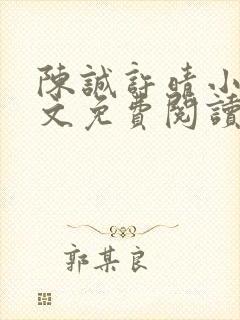 陳誠許晴小
文免費閱讀
郭某良